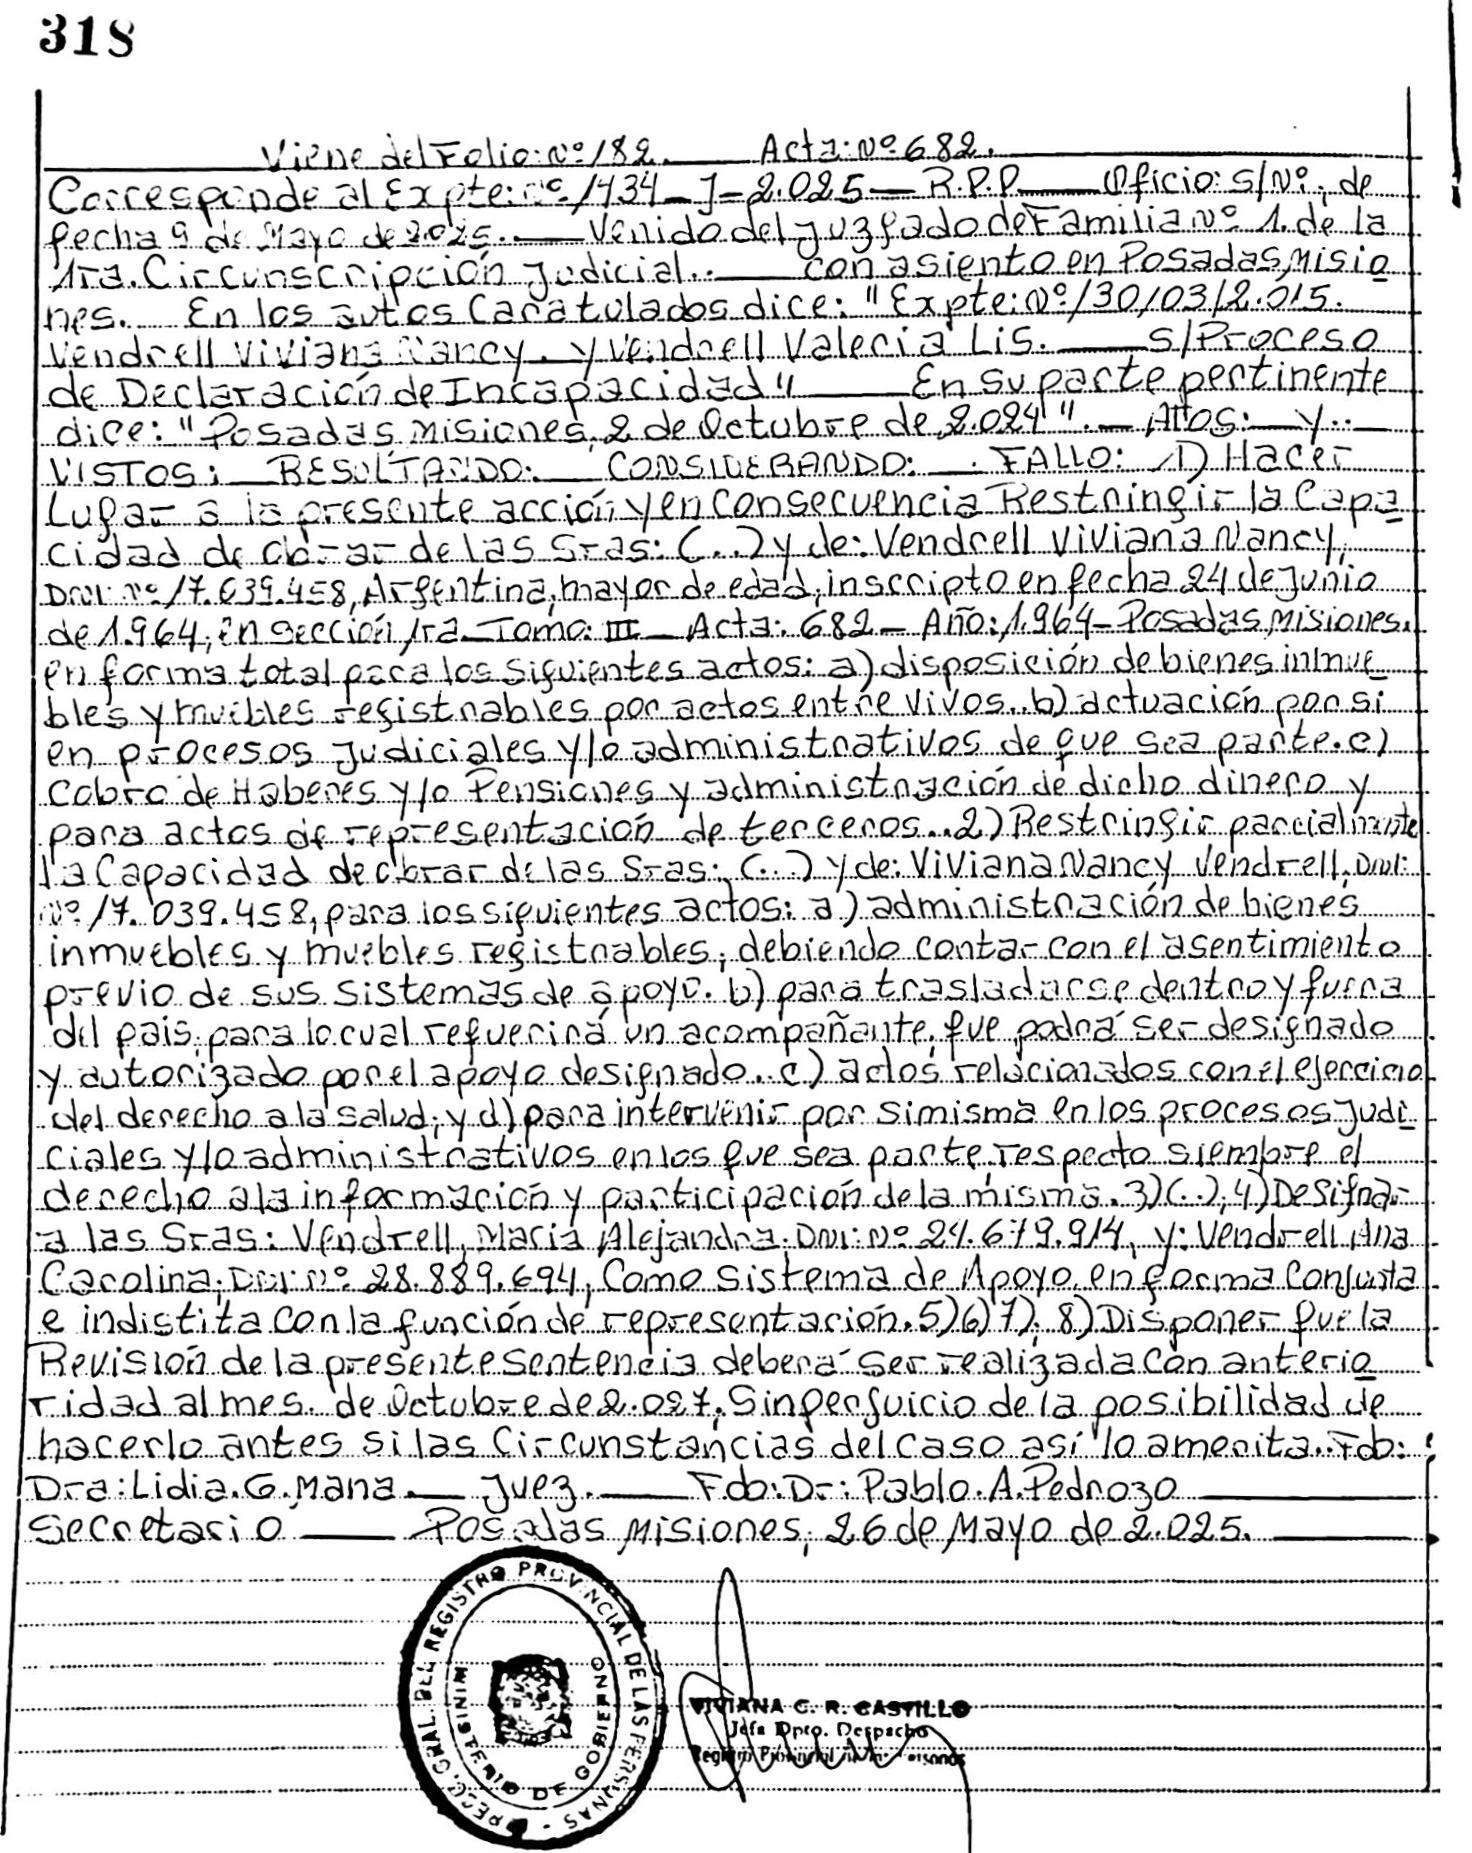 318
Viene del Folio: Nº 182. Acta: Nº 682.
Corresponde al Expte: Nº 1434-J-2.025 — R.P.P. — Oficio: S/Nº, de
fecha 9 de Mayo de 2025. — Venido del Juzgado de Familia Nº 1. de la
1ra. Circunscripción Judicial. — con asiento en Posadas, Misio
nes. — En los autos Caratulados dice: "Expte: Nº 130103/2.015.
Vendrell Viviana Nancy. y Vendrell Valeria Lis. — S/Proceso
de Declaración de Incapacidad" — En su parte pertinente
dice: "Posadas, Misiones, 2 de Octubre de 2.024". — Y..
VISTOS: — RESULTANDO: — CONSIDERANDO: — FALLO: 1) Hacer
Lugar a la presente acción y en consecuencia Restringir la Capa
cidad de obrar de las Sras: (...) y de: Vendrell Viviana Nancy,
DNI: Nº 17.039.458, Argentina, mayor de edad, inscripto en fecha 24 de Junio
de 1.964, en Sección 1ra - Tomo: III - Acta: 682 - Año: 1.964 - Posadas, Misiones.
en forma total para los siguientes actos: a) disposición de bienes inmue
bles y muebles registrables por actos entre vivos.. b) actuación por si
en procesos Judiciales y/o administrativos de que sea parte. c)
Cobro de Haberes y/o Pensiones y administración de dicho dinero y
para actos de representación de terceros.. 2) Restringir parcialmente
la Capacidad de obrar de las Sras: (...) y de: Viviana Nancy Vendrell, DNI:
Nº 17.039.458, para los siguientes actos: a) administración de bienes
inmuebles y muebles registrables, debiendo contar con el asentimiento
previo de sus sistemas de apoyo. b) para trasladarse dentro y fuera
del pais, para lo cual requerirá un acompañante, que podrá ser designado
y autorizado por el apoyo designado. c) actos relacionados con el ejercicio
del derecho a la salud, y d) para intervenir por si misma en los procesos Judi
ciales y/o administrativos en los que sea parte, respecto siempre el
derecho a la información y participación de la misma. 3) (...), 4) Designar
a las Sras: Vendrell, Maria Alejandra. DNI: Nº 24.679.914, y: Vendrell, Ana
Carolina, DNI: Nº 28.889.694, Como Sistema de Apoyo, en forma Conjunta
e indistita con la función de representación. 5) 6) 7). 8) Disponer que la
Revisión de la presente sentencia deberá ser realizada con anterio
ridad al mes. de Octubre de 2.027, Sin perjuicio de la posibilidad de
hacerlo antes si las Circunstancias del caso así lo amerita.. Fdo:
Dra: Lidia. G. Mana. — Juez. — Fdo: Dr: Pablo. A. Pedrozo
Secretario — Posadas Misiones, 26 de Mayo de 2.025.
GRAL. DEL REGISTRO PROVINCIAL DE LAS PERSONAS
MINISTERIO DE GOBIERNO
VIVIANA C. R. CASTILLO
Jefa Dpto. Despacho